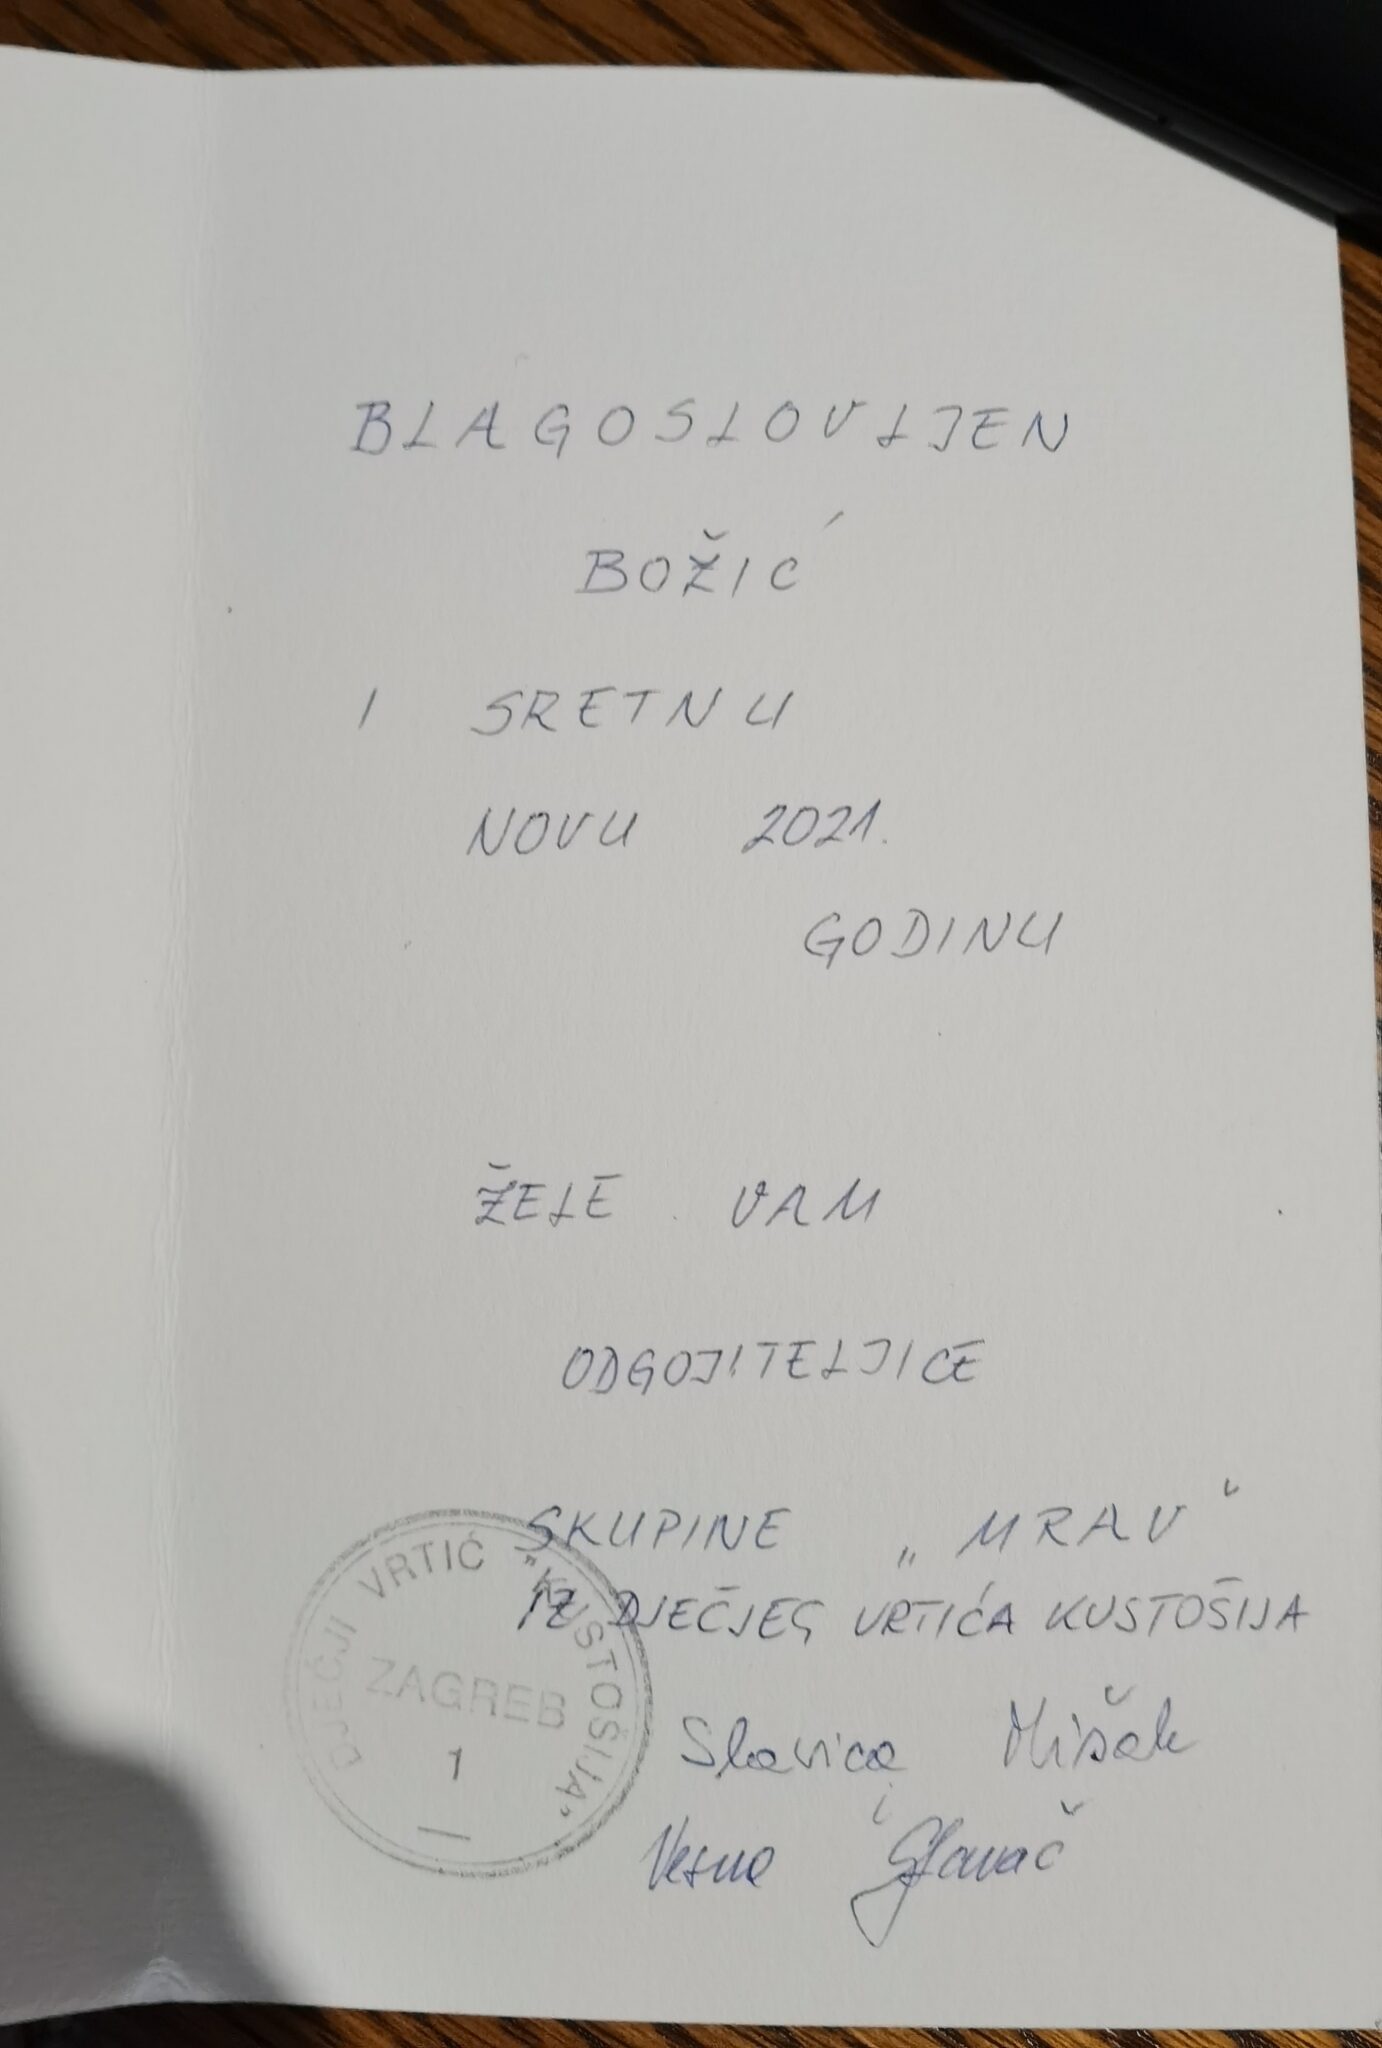 BLAGOSLOVLJEN
BOŽIĆ
I SRETNU
NOVU 2021.
GODINU
ŽELE VAM
ODGOJITELJICE
SKUPINE „MRAV“
IZ DJEČJEG VRTIĆA KUSTOŠIJA
Slavica Mišak
i
Vesna Glavač
DJEČJI VRTIĆ "KUSTOŠIJA"
ZAGREB
1